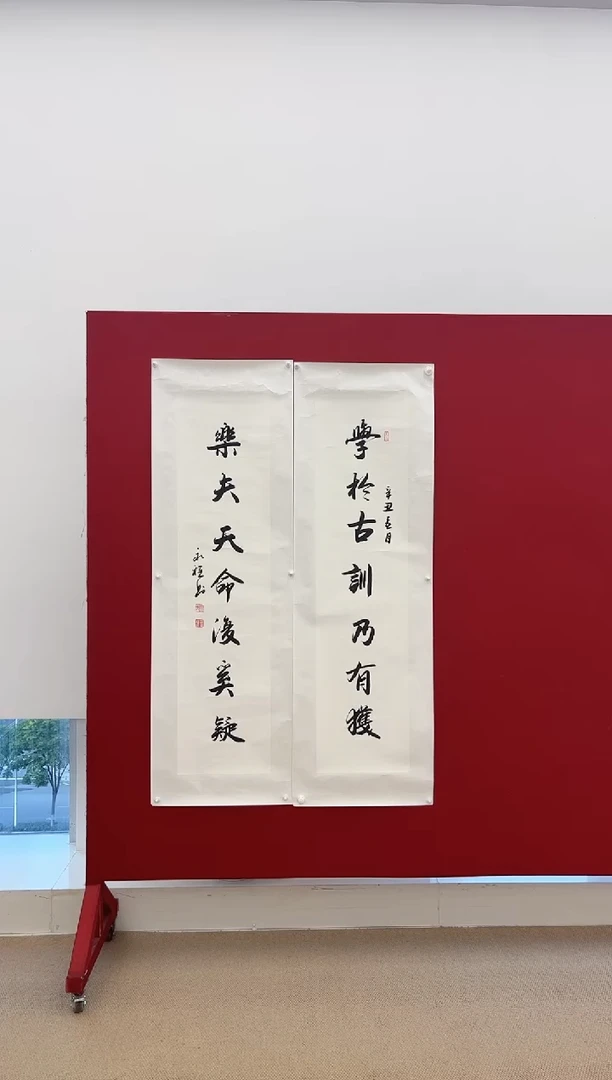 學於古訓乃有獲
辛丑春月
樂夫天命復奚疑
永植書